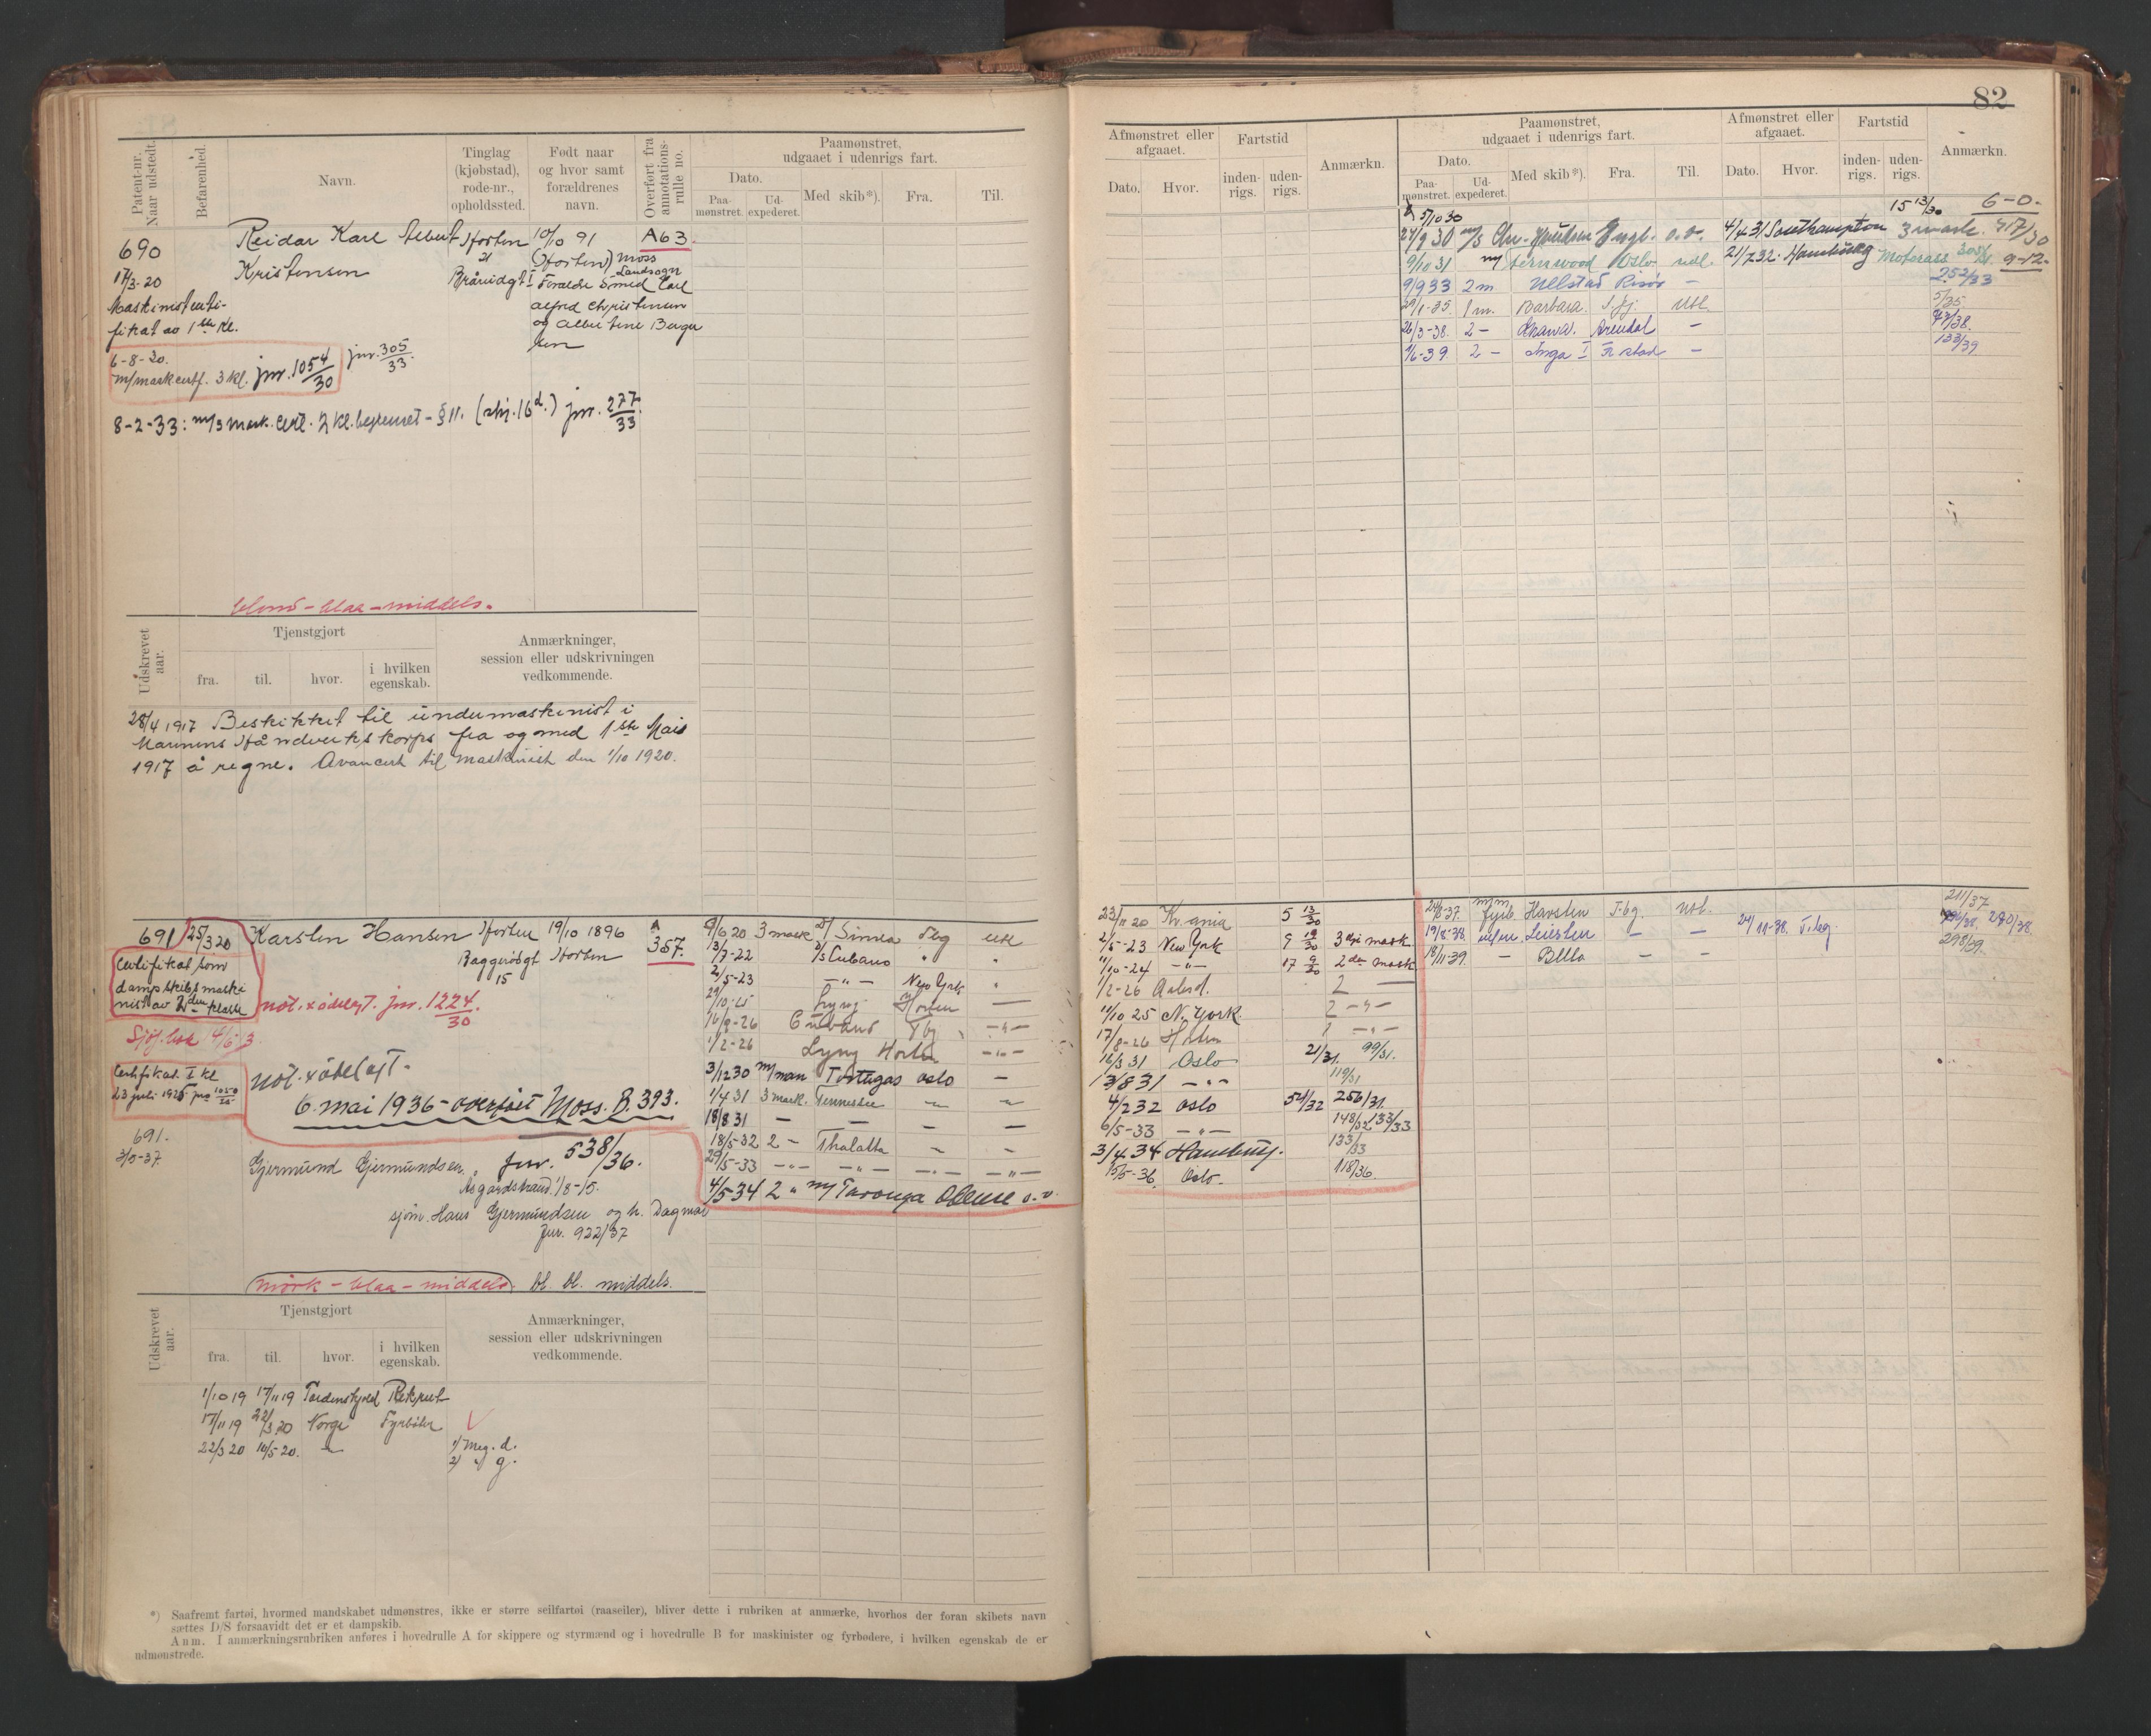 82
Patent-nr. Naar udstedt.
Befarenhed.
Navn.
Tinglag (kjøbstad), rode-nr., opholdssted.
Født naar og hvor samt forældrenes navn.
Overført fra annotations-rulle no.
Paamønstret, udgaaet i udenrigs fart.
Dato.
Paa-mønstret.
Ud-expederet.
Med skib*).
Fra.
Til.
690
17/3-20
Maskinistcerti-
fikat av 1ste kl.
6-8-20.
m/mask.certf. 3 kl. jnr. 1054/30
jnr. 305/33.
Reidar Karl Albert
Kristensen
Horten
10/10 91
(Horten) Moss Landsogn
Forældre Smed Carl
Alfred Christensen
og Albertine
A 63
8-2-33: m/s mask. cert. 2 kl. begrenset - § 11. jnr. 277/33
blond - blaa - middels.
Udskrevet aar.
Tjenstgjort
fra.
til.
hvor.
i hvilken egenskab.
Anmærkninger, session eller udskrivningen vedkommende.
28/4 1917 Beskikket til undermaskinist i
Marinens Håndverkskorps fra og med 1ste Mai
1917 å regne. Avancert til maskinist den 1/10 1920.
691
25/3 20
Karsten Hansen
Horten
19/10 1896
A 357.
Baggerødgt Horten
15
Certifikat som
dampskibsmaski
nist av 2den klasse
not. x ødelagt. jnr. 1224/30
Certifikat I kl
23 juli 1925 jnr 1050/25
not. x ødelagt.
6. mai 1936 - overført Moss. B. 393.
jnr. 538/36.
691.
3/5-37.
Gjermund Gjermundsen,
Åsgårdstrand. 1/8-15.
sjøm. Hans Gjermundsen og h. Dagmar
Jnr. 922/37
9/6 20 3 mask D/ Simla Tbg utl
3/7-22 D/s Cubano " "
2/5-23 - " - New York "
29/10-25 Lyng Horten —
16/8-26 Cubano Tbg - " -
1/2-26 Lyng Horten - " -
3/12 30 m/man Tortugas Oslo —
1/4 31 3 mask. Tennessee - -
18/8 31 — — — —
18/5-32 2 - Thalatta - -
29/5-33 - " - - " - - " - - " -
4/5 34 2 " m/ Taronga Odense o.v.
mørk - blaa - middels. bl. bl. middels.
Udskrevet aar.
Tjenstgjort
fra.
til.
hvor.
i hvilken egenskab.
Anmærkninger, session eller udskrivningen vedkommende.
1/10 19 17/11 19 Tordenskjold Rekrut
17/11 19 22/3 20 Norge Fyrbøter
22/3 20 10/5 20. - " -
1) Meg. d.
2) " g.
*) Saafremt fartøi, hvormed mandskabet udmønstres, ikke er større seilfartøi (raaseiler), bliver dette i rubriken at anmærke, hvorhos der foran skibets navn
sættes D/S forsaavidt det er et dampskib.
Anm. I anmærkningsrubriken anføres i hovedrulle A for skippere og styrmænd og i hovedrulle B for maskinister og fyrbødere, i hvilken egenskab de er
udmønstrede.
Afmønstret eller afgaaet.
Dato.
Hvor.
Fartstid
inden-rigs.
uden-rigs.
Anmærkn.
Paamønstret, udgaaet i udenrigs fart.
Dato.
Paa-mønstret.
Ud-expederet.
Med skib*).
Fra.
Til.
Afmønstret eller afgaaet.
Dato.
Hvor.
Fartstid
inden-rigs.
uden-rigs.
Anmærkn.
5/10 30
15 13/30
6-0.
27/9 30 m/s Chr. Knudsen Engl. o.v. 4/4 31 Southampton 3 mask. 717/30
9/10 31 m/ Fernwood Oslo utl. 21/7 32. Hamburg Motorass 9-12.
9/9 33 2 m. Ullstad Risør — 252/33
29/1-35. 1 m. Barbara. Utl. 5/35
26/3-38. 2 - Arendal - 73/38.
1/6-39. 2 - Inga I Fr stad - 133/39
23/11 20 Kr.ania 5 13/30
2/5-23 New York 9 19/30 3dje mask
11/10-24 - " - 17 9/30 2den mask
1/2-26 2 —
11/10 25 N. York. 2 - " -
17/8-26 Horten 1 - " -
16/3 31 Oslo 21/31. 99/31.
13/8 31 - " - 119/31
4/2 32 Oslo 52/32 256/31.
6/5-33 - " - 148/32 133/33
3/4 34 Hamburg. 133/33
15/5-36. Oslo. 118/36.
24/8-37. fyrb. Havsten T.bg. utl. 211/37
19/8-38. Leiesten — — 24/11-38. T.bg. 280/38.
18/11-39. - Bello - - 298/39.